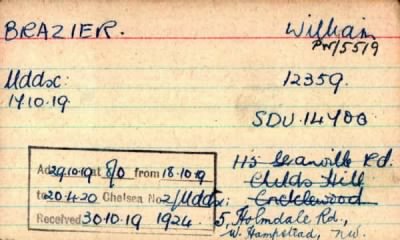 BRAZIER. William
PW/5519
Mddx: 12359.
17.10.19.
SDU.14700
Ad 29.10.19 at 8/0 from 18.10.19
to 20.4.20 Chelsea No 2/Mddx:
Received 30.10.19 1924
115 Granville Rd.
Childs Hill
Cricklewood
5, Holmdale Rd.,
W. Hampstead, N.W.